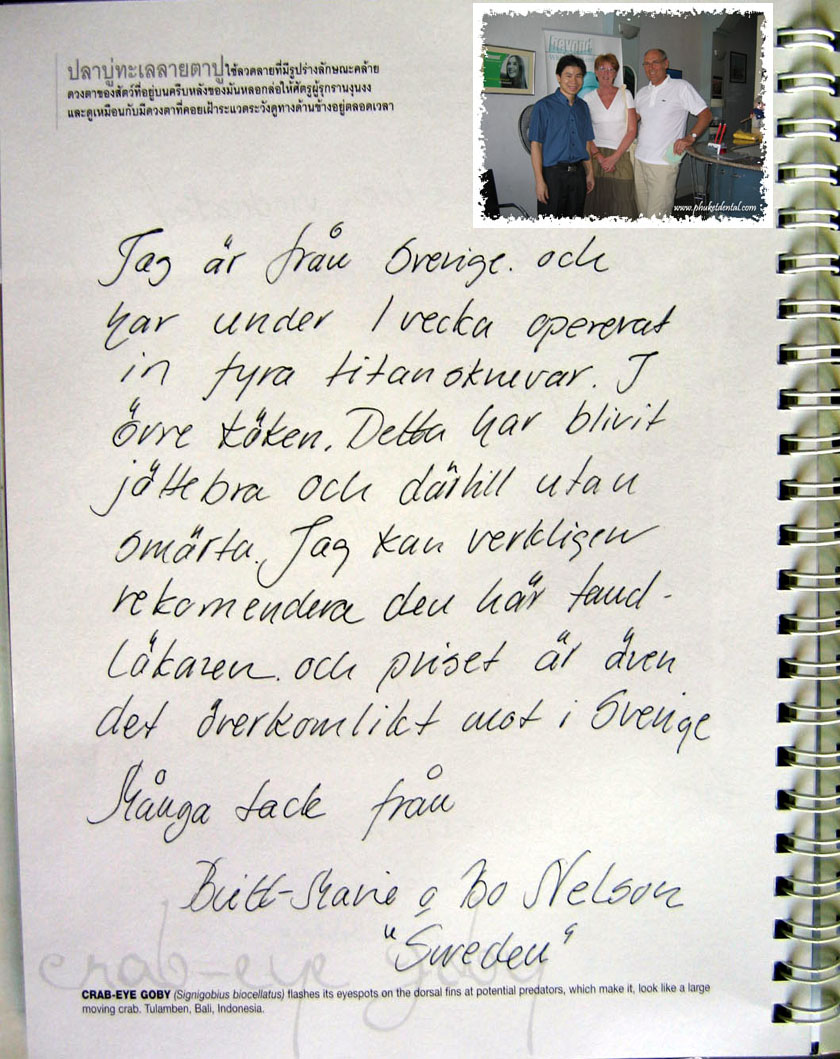 ปลาบู่ทะเลลายตาปูใช้ลวดลายที่มีรูปร่างลักษณะคล้าย
ดวงตาของสัตว์ที่อยู่บนครีบหลังของมันหลอกล่อให้ศัตรูผู้รุกรานงุนงง
และดูเหมือนกับมีดวงตาที่คอยเฝ้าระแวดระวังดูทางด้านข้างอยู่ตลอดเวลา
www.phuketdental.com
Jag är från Sverige. och
har under 1 vecka opererat
in fyra titanskruvar. I
övre käken. Detta har blivit
jättebra och därtill utan
smärta. Jag kan verkligen
rekomendera den här tand-
läkaren. och priset är även
det överkomlikt mot i Sverige
Många tack från
Britt-Marie o Bo Nelson
"Sweden"
crab-eye goby
CRAB-EYE GOBY (Signigobius biocellatus) flashes its eyespots on the dorsal fins at potential predators, which make it, look like a large
moving crab. Tulamben, Bali, Indonesia.